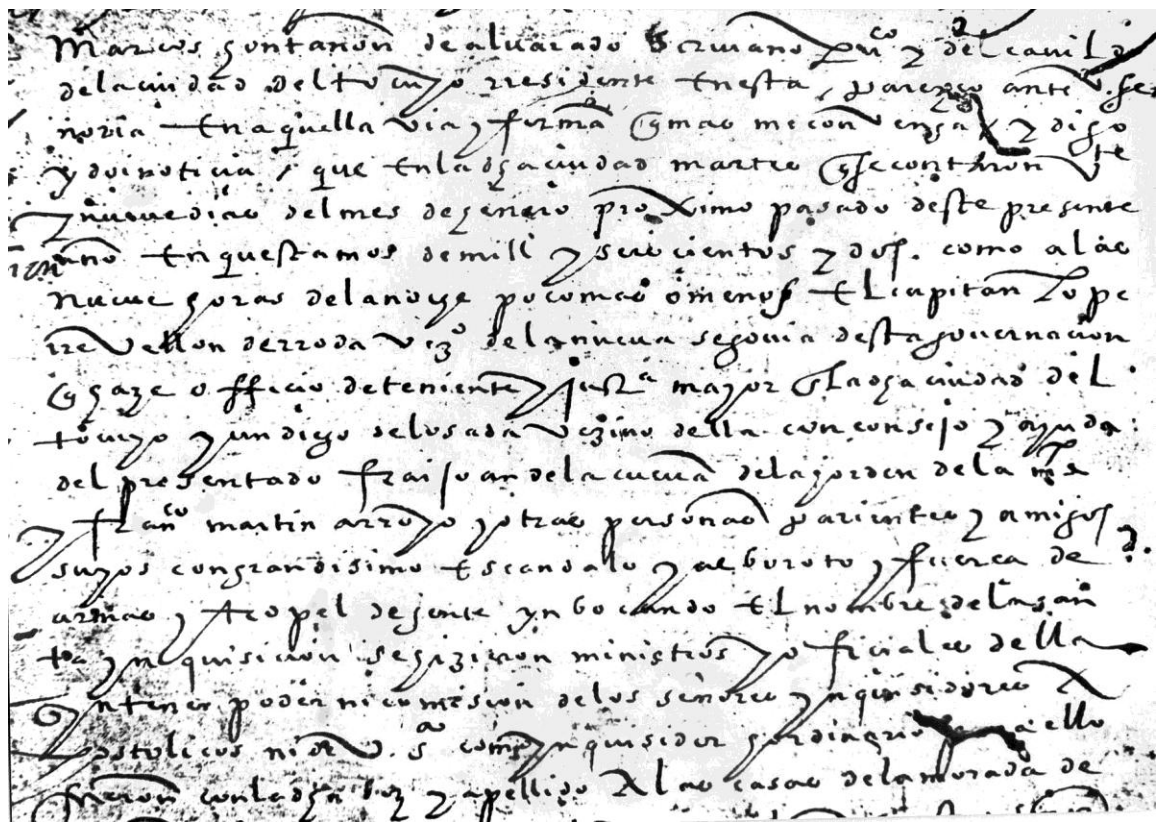 Marcos gontanon de alvarado Scrivano puco y del cavildo
de la ciudad del tocuyo rresidente En esta, parezco ante v. se
noria En aquella via y forma q mas me convenga y digo
y doi noticia, que En la dha ciudad martes q se contaron vte
y nueve dias del mes de henero proximo pasado deste presente
año En questamos de mill y seiscientos y dos. como a las
nueve horas de la noche poco mas o menos El capitan Lope
rrevellon de rroda vezo de la nueva segovia desta governacion
q haze officio de teniente y justa mayor En la dha ciudad del
tocuyo y un diego de losada vezino della con consejo y ayuda
del presentado frai Juan de la cueva de la horden de la md
y franco martin arroyo y otras personas parientes y amigos
suyos con grandisimo Escandalo y alboroto y fuerca de
armas y tropel de jente ynbocando El nombre de la san
ta ynquisicion se hizieron ministros y oficiales della
sin tener poder ni comision de los señores ynquisidores A
postolicos ni de v. sa como ynquisidor hordinario para ello
fueron con la dha boz y apellido A las casas de la morada de